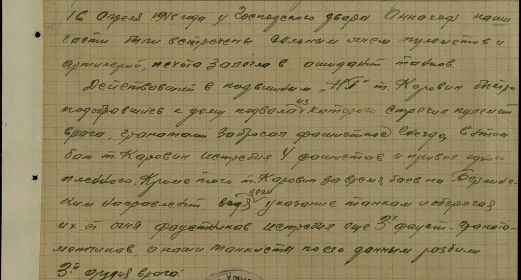 16 апреля 1945 года у Господского двора Аннахоф наши
части были встречены сильным огнем пулеметов и
артиллерии, пехота залегла в ожидании танков.
Действовавший в подвижным "НП" т. Каровин быстро
подобравшись к дому подвала из которого строчил пулемет
врага, гранатами забросал фашистское гнездо, в этом
бою т. Каровин истребил 4 фашистов и привел одного
пленного. Кроме того т. Каровин за время боев на Берлинс-
ком направлении ведя указание танкам и оберегая
их от огня фаустников истребил еще 3х фауст. гранато-
метчиков, а наши танкисты по его данным разбили
3 орудия врага.